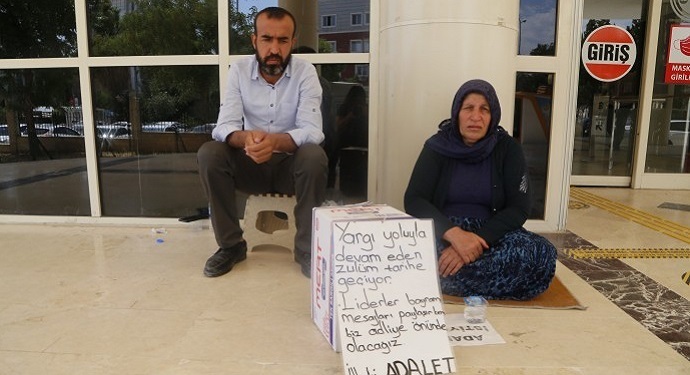 GİRİŞ
MASK
GİRİLE
MERT
Yargı yoluyla
devam eden
zulüm tarihe
geçiyor.
Liderler bayram
mesajları paylaşırken
biz adliye önünde
olacağız
ADALET
ADAL